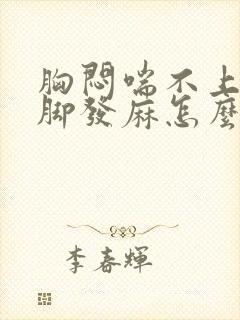 胸悶喘不上
腳發麻怎麼
李春輝